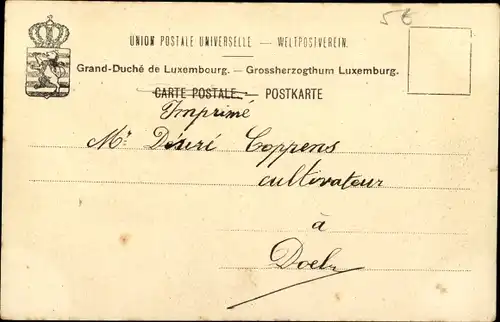 5€
UNION POSTALE UNIVERSELLE — WELTPOSTVEREIN.
Grand-Duché de Luxembourg. — Grossherzogthum Luxemburg.
CARTE POSTALE. — POSTKARTE
Imprimé
Mr Désiré Coppens
cultivateur
à
Doel